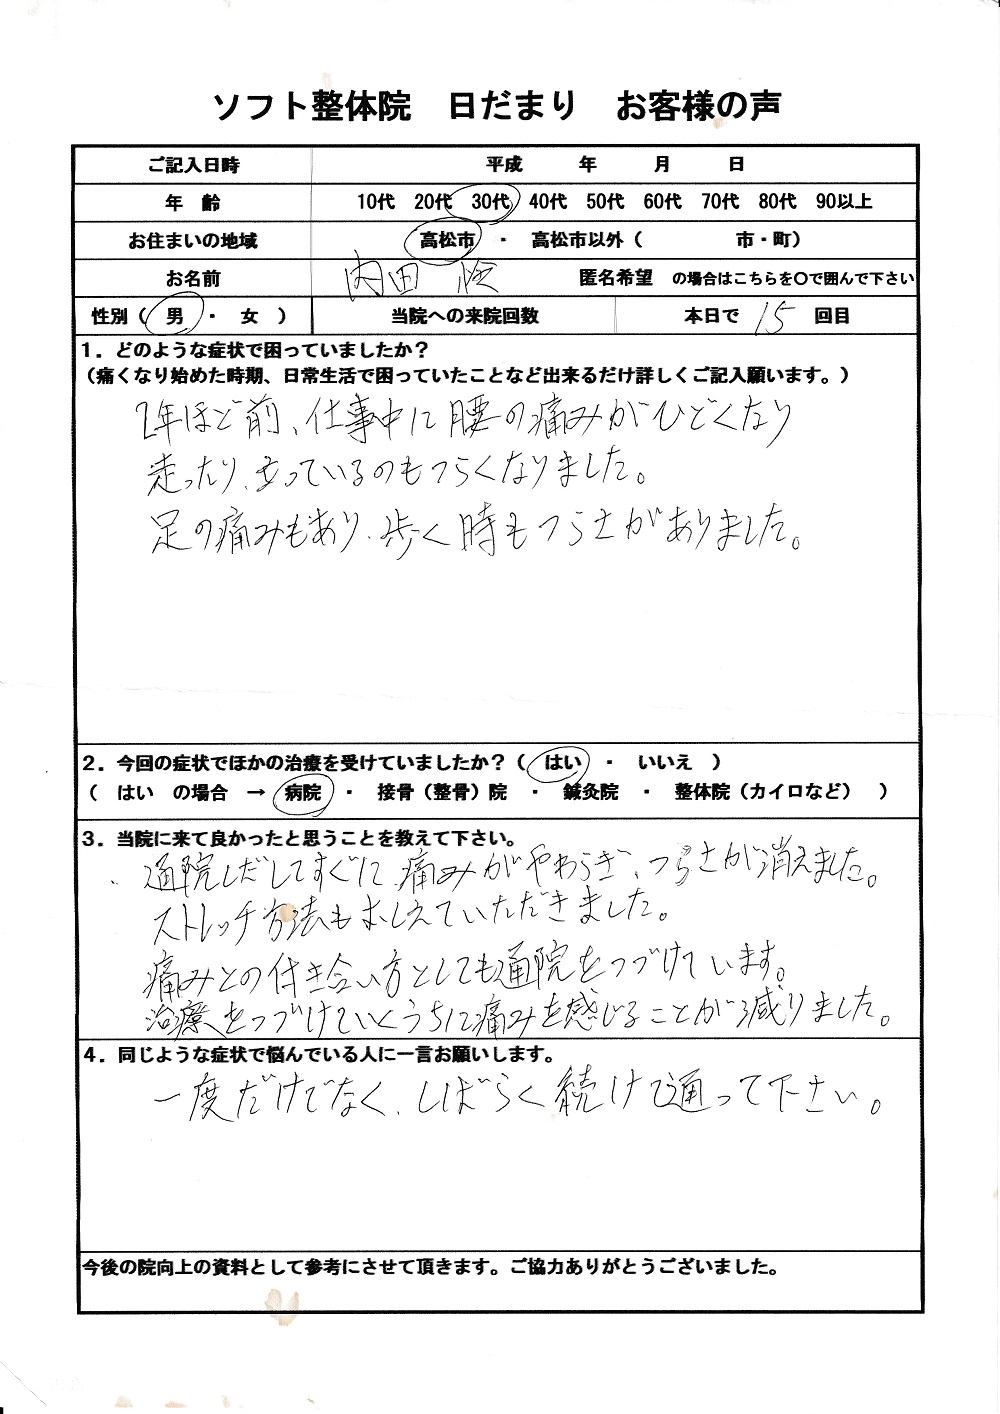 ソフト整体院　日だまり　お客様の声
ご記入日時　平成　年　月　日
年　齢　10代　20代　30代　40代　50代　60代　70代　80代　90以上
お住まいの地域　高松市　・　高松市以外（　市・町）
お名前　内田　匿名希望　の場合はこちらを〇で囲んで下さい
性別（　男　・　女　）　当院への来院回数　本日で　15　回目
１．どのような症状で困っていましたか？
（痛くなり始めた時期、日常生活で困っていたことなど出来るだけ詳しくご記入願います。）
2年ほど前、仕事中に腰の痛みがひどくなり
走ったり、立っているのもつらくなりました。
足の痛みもあり、歩く時もつらさがありました。
２．今回の症状でほかの治療を受けていましたか？（　はい　・　いいえ　）
（　はい　の場合　→　病院　・　接骨（整骨）院　・　鍼灸院　・　整体院（カイロなど）　）
３．当院に来て良かったと思うことを教えて下さい。
通院しだしてすぐに、痛みがやわらぎ、つらさが消えました。
ストレッチ方法もおしえていただきました。
痛みとの付き合い方としても通院をつづけています。
治療をつづけていくうちに痛みを感じることが減りました。
４．同じような症状で悩んでいる人に一言お願いします。
一度だけでなく、しばらく続けて通って下さい。
今後の院向上の資料として参考にさせて頂きます。ご協力ありがとうございました。